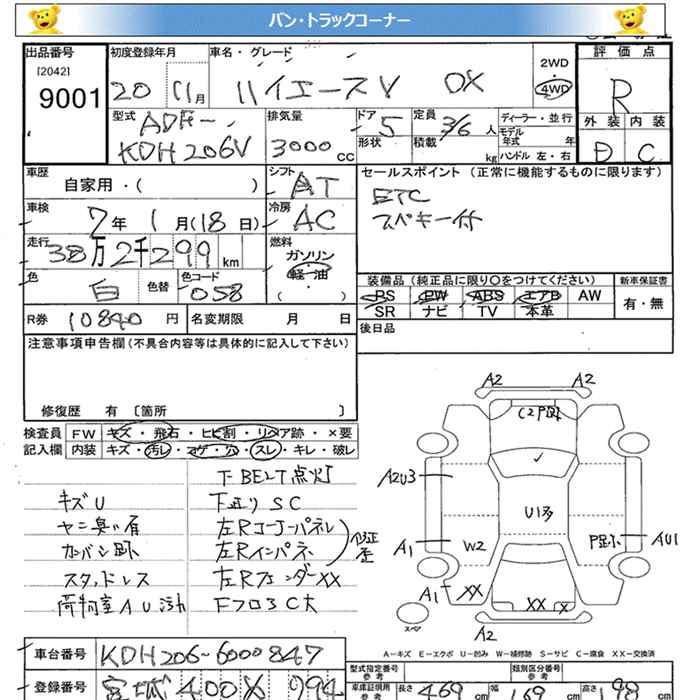 バン・トラックコーナー
出品番号 初度登録年月 車名・グレード 評価点
[2042]
9001
20 11月 ハイエースV DX
2WD
・
4WD
R
型式 ADF-
KDH206V
排気量
3000 cc
ドア 5
形状
定員 3/6 人
積載 kg
ディーラー・並行
モデル
年式 年
ハンドル 左・右
外装 内装
D C
車歴
自家用・( )
シフト AT
セールスポイント (正常に機能するものに限ります)
ETC
車検 7年 1月(18日)
冷房 AC
走行 38万2千299km
燃料
ガソリン
軽・油
( )
色 白 色替 色コード 058
装備品(純正品に限り○をつけてください) 新車保証書
PS PW ABS エアB AW 有・無
SR ナビ TV 本革
R券 10840円 名変期限 月 日
後日品
注意事項申告欄(不具合内容等は具体的に記入して下さい)
修復歴 有 〔箇所 〕
検査員 FW キズ・飛石・ヒビ割・リペア跡・×要
記入欄 内装 キズ・汚レ・コゲ・穴・スレ・キレ・破レ
下BELT点灯
キズU
下廻りSC
ヤニ臭い
左Rコーナーパネル
左Rインパネ
スタッドレス
左Rフェンダー××
荷物室AU汚れ
FフロアC大
A2 A2
A2U3
U13
A1
W2
AU1
A1
XX
XX X
A2
スペア
A-キズ E-エクボ U-凹み W-補修跡 S-サビ C-腐食 XX-交換済
車台番号 KDH206-6000847
登録番号 宮城 400 X 994
型式指定番号
参考
類別区分番号
参考
車庫証明用
参考
長さ 469 幅 169 高さ 198